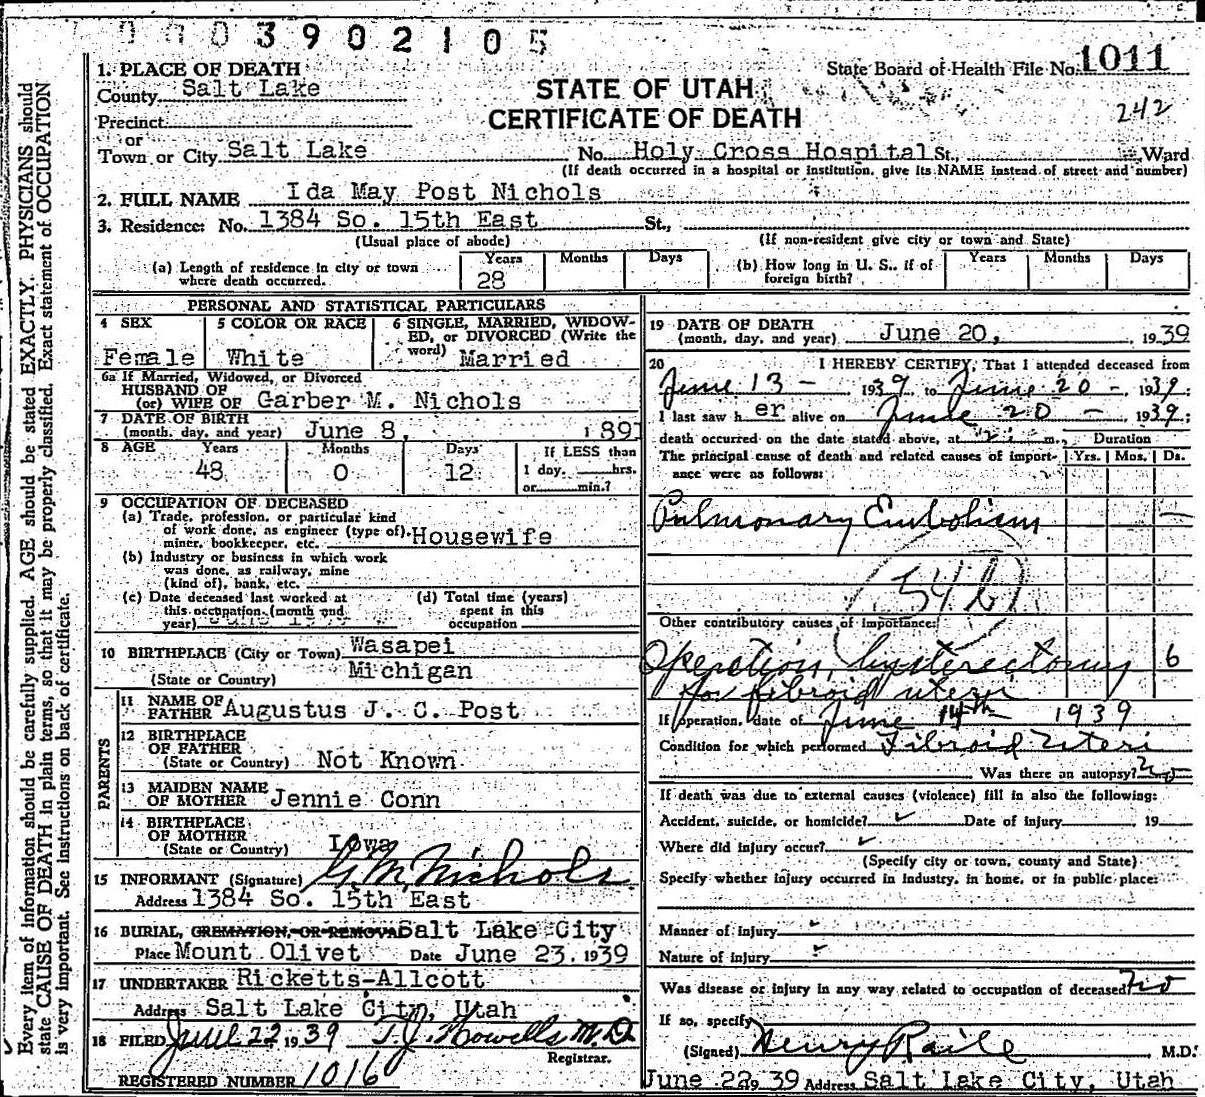 0003902105
1. PLACE OF DEATH
State Board of Health File No. 1011
County Salt Lake
STATE OF UTAH
242
Precinct
CERTIFICATE OF DEATH
or
Town or City Salt Lake No. Holy Cross Hospital St., Ward
(If death occurred in a hospital or institution, give its NAME instead of street and number)
2. FULL NAME Ida May Post Nichols
3. Residence: No. 1384 So. 15th East St.,
(Usual place of abode) (If non-resident give city or town and State)
(a) Length of residence in city or town where death occurred. Years 28 Months Days
(b) How long in U. S., if of foreign birth? Years Months Days
PERSONAL AND STATISTICAL PARTICULARS
4 SEX Female
5 COLOR OR RACE White
6 SINGLE, MARRIED, WIDOWED, or DIVORCED (Write the word) Married
6a If Married, Widowed, or Divorced
HUSBAND OF
(or) WIFE OF Garber M. Nichols
7 DATE OF BIRTH
(month, day, and year) June 8, 1891
8 AGE Years 48 Months 0 Days 12 If LESS than 1 day, hrs. or min.?
9 OCCUPATION OF DECEASED
(a) Trade, profession, or particular kind
of work done, as engineer (type of), Housewife
miner, bookkeeper, etc.
(b) Industry or business in which work
was done, as railway, mine
(kind of), bank, etc.
(c) Date deceased last worked at
this occupation (month and
year) June
(d) Total time (years)
spent in this
occupation
10 BIRTHPLACE (City or Town) Wasapei
(State or Country) Michigan
PARENTS
11 NAME OF
FATHER Augustus J. C. Post
12 BIRTHPLACE
OF FATHER
(State or Country) Not Known
13 MAIDEN NAME
OF MOTHER Jennie Conn
14 BIRTHPLACE
OF MOTHER
(State or Country) Iowa
15 INFORMANT (Signature) G. M. Nichols
Address 1384 So. 15th East
16 BURIAL, CREMATION, OR REMOVAL Salt Lake City
Place Mount Olivet Date June 23, 1939
17 UNDERTAKER Ricketts-Allcott
Address Salt Lake City, Utah
18 FILED June 22 1939 T. J. Howells M.D.
Registrar.
REGISTERED NUMBER 1016
19 DATE OF DEATH
(month, day, and year) June 20, 1939
20 I HEREBY CERTIFY, That I attended deceased from
June 13 - 1939 to June 20 - 1939;
I last saw her alive on June 20 - 1939;
death occurred on the date stated above, at m., Duration
The principal cause of death and related causes of importance were as follows: Yrs. Mos. Ds.
Pulmonary Embolism -
54b
Other contributory causes of importance:
Operation, hysterectomy 6
for fibroid uteri
If operation, date of June 14th 1939
Condition for which performed Fibroid Uteri
Was there an autopsy? no
If death was due to external causes (violence) fill in also the following:
Accident, suicide, or homicide? ✓ Date of injury 19
Where did injury occur? ✓
(Specify city or town, county and State)
Specify whether injury occurred in industry, in home, or in public place:
Manner of injury ✓
Nature of injury ✓
Was disease or injury in any way related to occupation of deceased? No
If so, specify
(Signed) Henry Raile M.D.
June 22 19 39 Address Salt Lake City, Utah
Every item of information should be carefully supplied. AGE should be stated EXACTLY. PHYSICIANS should
state CAUSE OF DEATH in plain terms, so that it may be properly classified. Exact statement of OCCUPATION
is very important. See instructions on back of certificate.